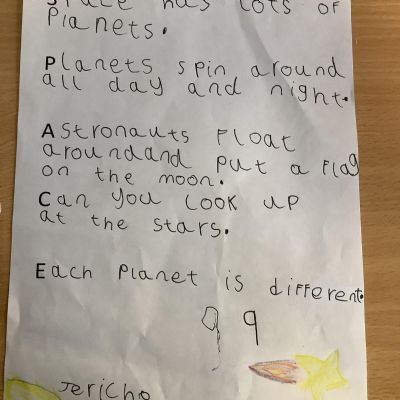 Space has lots of
Planets.
Planets spin around
all day and night.
Astronauts float
around and put a flag
on the moon.
Can you look up
at the stars.
Each planet is different.
9
Jericho